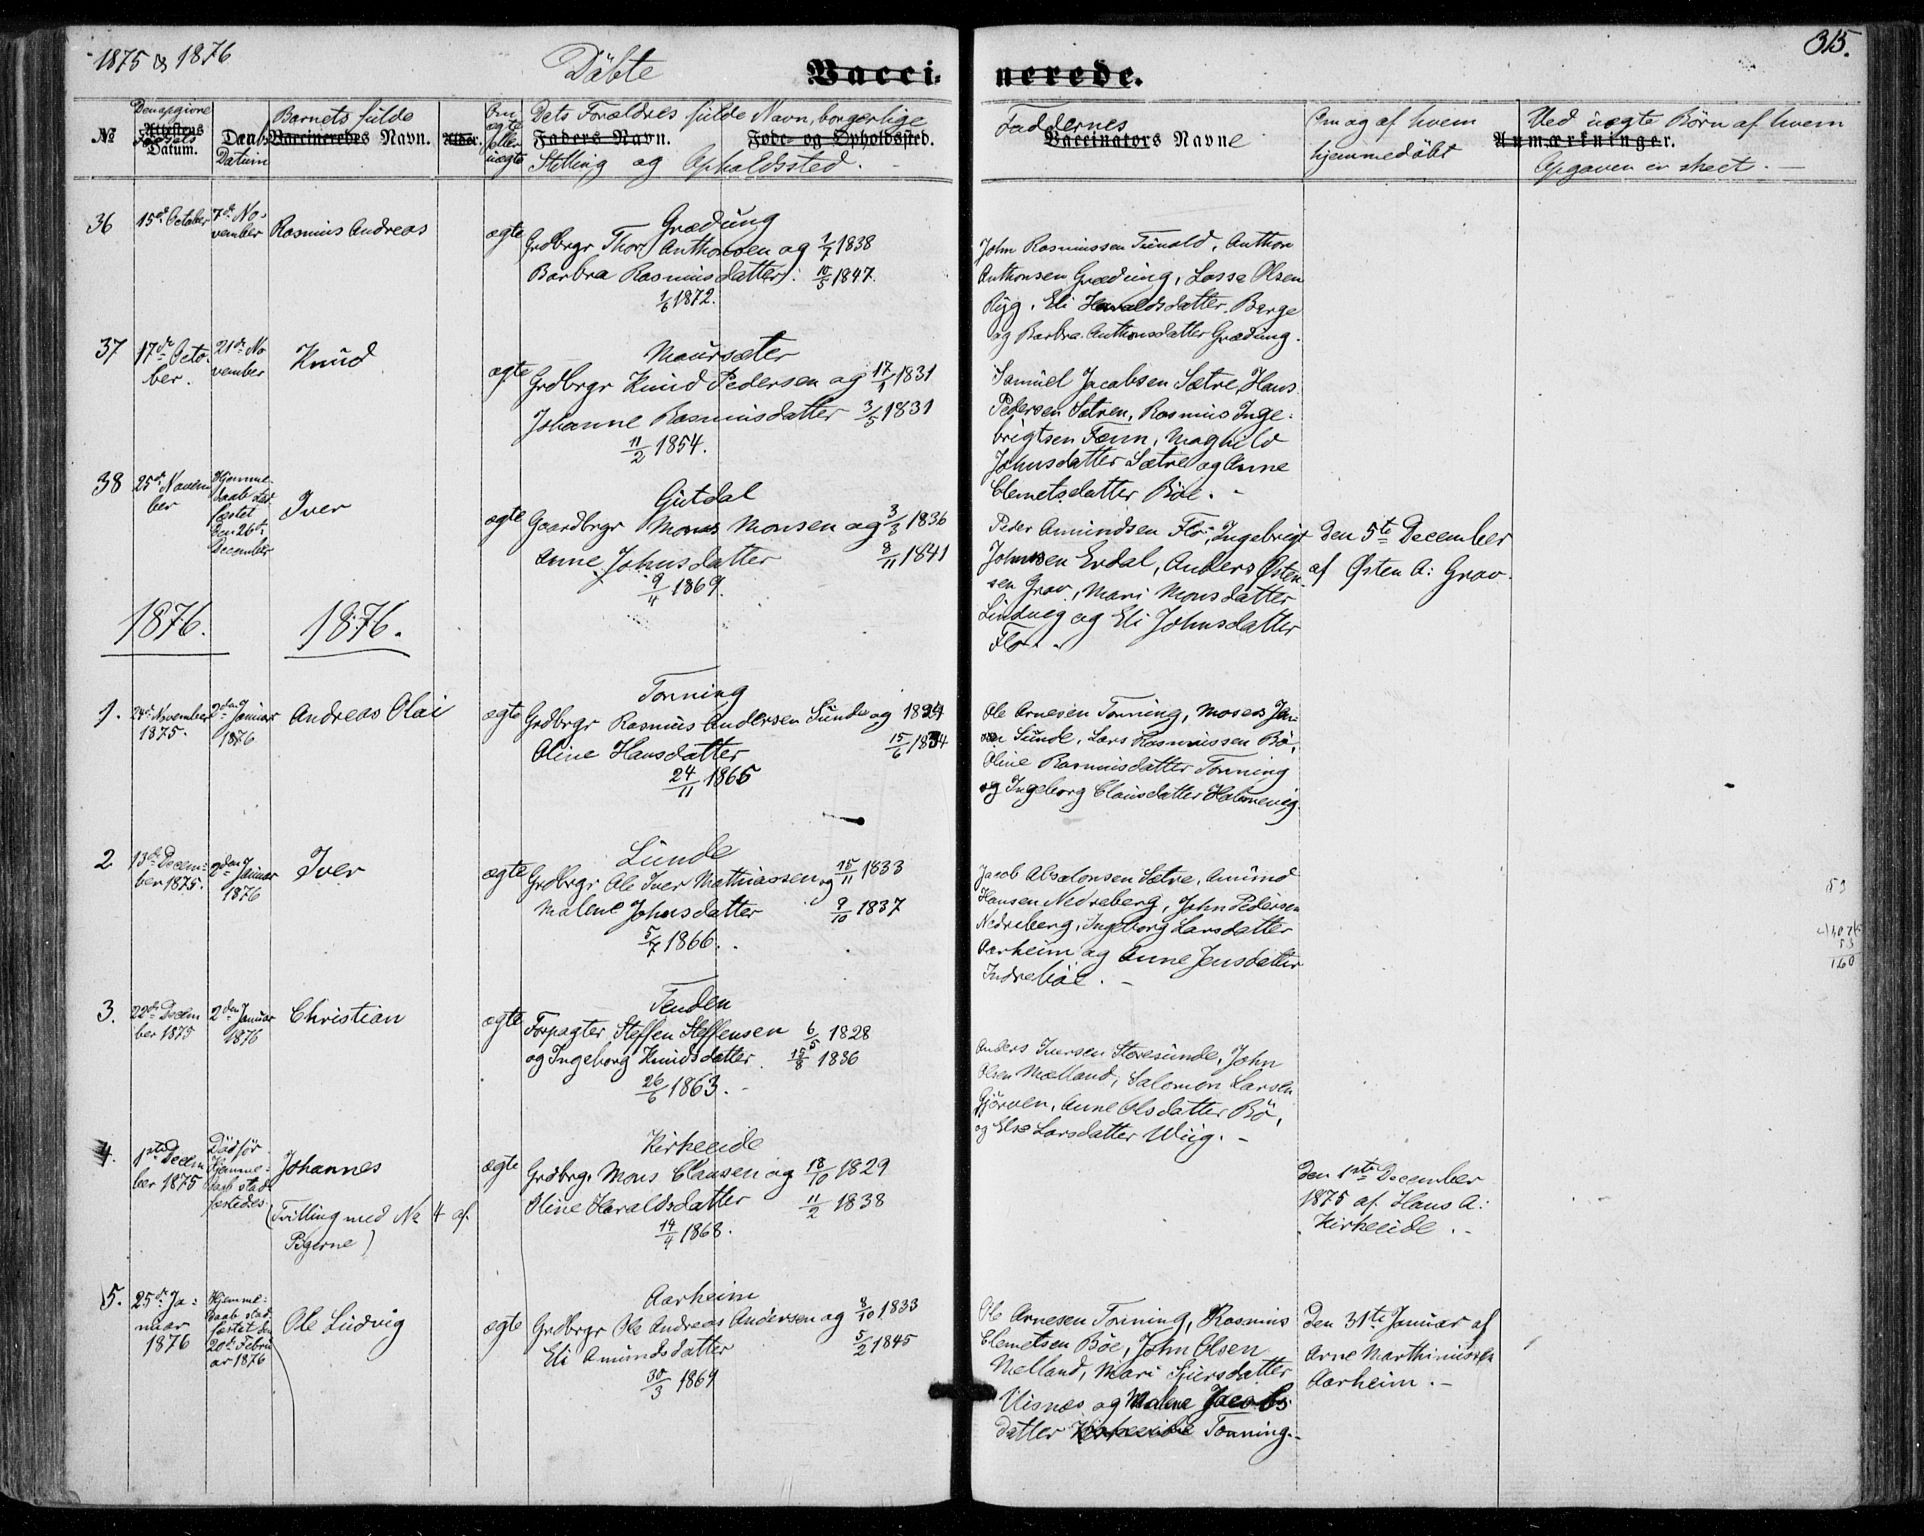 1875 & 1876
Döbte
Vacci-
nerede.
315.
№
Den opgivne
Attestens
Fødsels
Datum.
Daab
Datum
Barnets fulde
Vaccineredes Navn.
Alder.
Om
ægte
eller
uægte
Dets Forældres fulde Navn, borgerlige
Faders Navn.
Føde- og Opholdssted.
Stilling og Opholdssted.
Faddernes
Vaccinators Navne
Om og af hvem
hjemmedöbt
Ved uægte Børn af hvem
Anmærkninger.
Opgaven er skeet.
36
15de October
7de No-
vember
Rasmus Andreas
ægte
Grædung
Grdbrgr Thor Anthonsen og 1/7 1838
Barbra Rasmusdatter. 10/5 1847.
1/6 1872.
John Rasmussen Tunold, Anthon
Anthonsen Grædung, Lasse Olsen
Ryg, Eli Haraldsdatter Berge
og Barbra Anthonsdatter Grædung.
37
17de Octo-
ber.
21de No
vember
Knud
ægte
Maursæter
Grdbrgr Knud Pedersen og 17/1 1831
Johanne Rasmusdatter 3/5 1831
11/2 1854.
Samuel Jacobsen Sætre, Hans
Pedersen Sætren, Rasmus Inge-
brigtsen Fænn, Maghild
Johnsdatter Sætre og Anne
Clemetsdatter Böe.
38
25de Novem
ber
Hjemme-
daab stad
fæstet
Den 26de
December
Iver
ægte
Gutdal
Gaardbrgr Mons Monsen og 3/3 1836
Anne Johnsdatter 8/11 1841
9/4 1869.
Peder Amundsen Flo, Ingebrigt
Johnssen Erdal, Anders Østen-
sen Grov, Mari Monsdatter
Lindveg og Eli Johnsdatter
Flo.
Den 5te December
af Østen A: Grov.
1876.
1876.
1.
24de November
1875.
2den Januar
1876
Andreas Olai
ægte
Tonning
Grdbrgr Rasmus Andersen Sunde og 1824
Oline Hansdatter 15/6 1834
24/11 1865
Ole Arnesen Tonning, Moses Jen-
sen Sunde, Lars Rasmussen Bö,
Oline Rasmusdatter Tonning
og Ingeborg Clausdatter
2
13de Decem-
ber 1875.
2den Januar
1876
Iver
ægte
Lunde
Grdbrgr Ole Iver Mathiassen og 15/11 1833
Malene Johnsdatter 9/10 1837
5/7 1866.
Jacob Absalonsen Sætre, Amund
Hansen Nedreberg, John Pedersen
Nedreberg, Ingeborg Larsdatter
Aarheim og Anne Jensdatter
Indreböe.
3.
22de Decem
ber 1875
2den Januar
1876
Christian
ægte
Tenden
Forpagter Steffen Steffensen 6/5 1828
og Ingeborg Knudsdatter. 15/8 1836
26/6 1863.
Anders Iversen Storesunde, John
Olsen Mælland, Salomon Larsen
Gjörven, Anne Olsdatter Bö,
og Else Larsdatter Wiig.
4.
1ste Decem
ber 1875
Död för
Hjemme-
daab stad
fæstedes
Johannes
(Tvilling med № 4 af
Pigerne)
ægte
Kirkeeide
Grdbrg. Mons Clausen og 18/10 1829
Oline Haraldsdatter 11/2 1838
19/4 1868.
Den 1ste December
1875 af Hans A:
Kirkeeide.
5.
25de Ja-
nuar
1876
Hjemme-
daab stad
fæstet den
20de Febru
ar 1876
Ole Ludvig
ægte
Aarheim
Grdbrgr Ole Andreas Andersen og 8/10 1833
Eli Amundsdatter 5/2 1845
30/3 1869
Ole Arnesen Tonning, Rasmus
Clemetsen Böe, John Olsen
Melland, Mari Sjursdatter
Visnæs og Malene Jacobs-
datter Kirkeeide Tonning.
Den 31te Januar af
Arne Marthinussen
Aarheim.
53
53
160